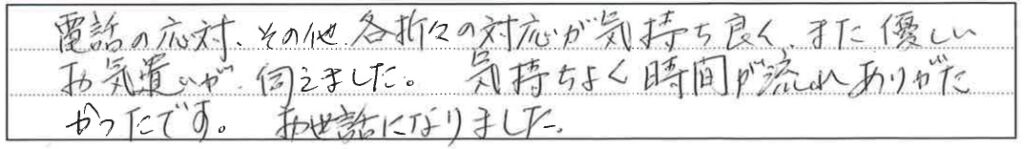 電話の応対、その他、各折々の対応が気持ち良く、また優しい
お気遣いが、伺えました。 気持ちよく時間が流れありがた
かったです。 お世話になりました。